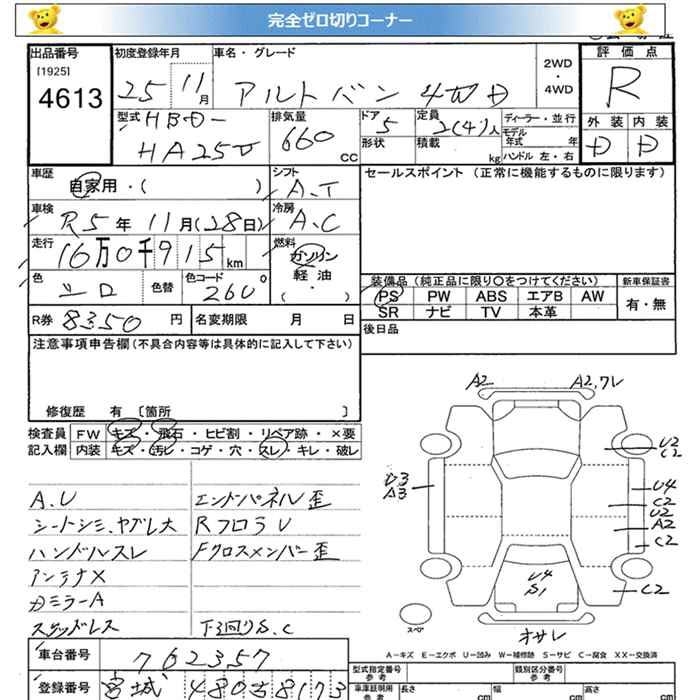 完全ゼロ切りコーナー
出品番号
[1925]
4613
初度登録年月
25 11月
車名・グレード
アルトバン 4WD
2WD
・
4WD
評価点
R
型式 HBD-
HA25V
排気量
660
CC
ドア
5
形状
定員
2(4)人
積載
kg
ディーラー・並行
モデル
年式 年
ハンドル 左・右
外装 内装
D D
車歴
自家用・( )
シフト
A.T
セールスポイント (正常に機能するものに限ります)
車検
R5年11月(28日)
冷房
A.C
走行
16万0千915km
燃料
ガソリン
軽油
( ・ )
色
シロ
色替
色コード
26U
装備品(純正品に限り○をつけてください)
新車保証書
PS PW ABS エアB AW
SR ナビ TV 本革
有・無
R券 8350円
名変期限 月 日
後日品
注意事項申告欄(不具合内容等は具体的に記入して下さい)
修復歴 有 〔箇所 〕
検査員 FW キズ・飛石・ヒビ割・リペア跡・×要
記入欄 内装 キズ・汚レ・コゲ・穴・スレ・キレ・破レ
A.U
シートシミ、ヤブレ大
ハンドルスレ
アンテナX
DミラーA
スタッドレス
エンドパネル歪
RフロアU
Fクロスメンバー歪
下廻りS.C
A2
A2,ワレ
U3
A3
U2
C2
U4
C2
U2
A2
C2
C2
U4
S1
オサレ
スペア
A=キズ E=エクボ U=凹み W=補修跡 S=サビ C=腐食 XX=交換済
車台番号
762357
登録番号
宮城 480 え 8173
型式指定番号
参考
類別区分番号
参考
車庫証明用
参考
長さ
cm
幅
cm
高さ
cm